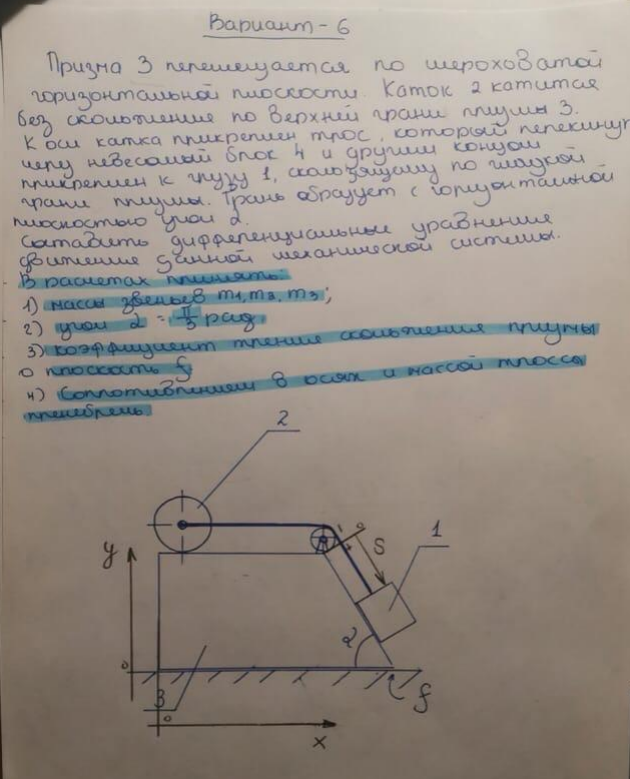 Вариант - 6
Призма 3 перемещается по шероховатой
горизонтальной плоскости. Каток 2 катится
без скольжение по верхней грани призмы 3.
К оси катка прикреплен трос, который перекинут
через невесомый блок 4 и другим концом
прикреплен к грузу 1, скользящему по гладкой
грани призмы. Грань образует с горизонтальной
плоскостью угол α.
Составить дифференциальные уравнение
движение данной механической системы.
В расчетах принять:
1) массы звеньев m1, m2, m3;
2) угол α = π/3 рад.
3) коэффициент трение скольжение призмы
о плоскость f
4) Сопротивлением в осях и массой тросса
пренебречь.
2
1
0
S
y
α
0
3
0
f
x